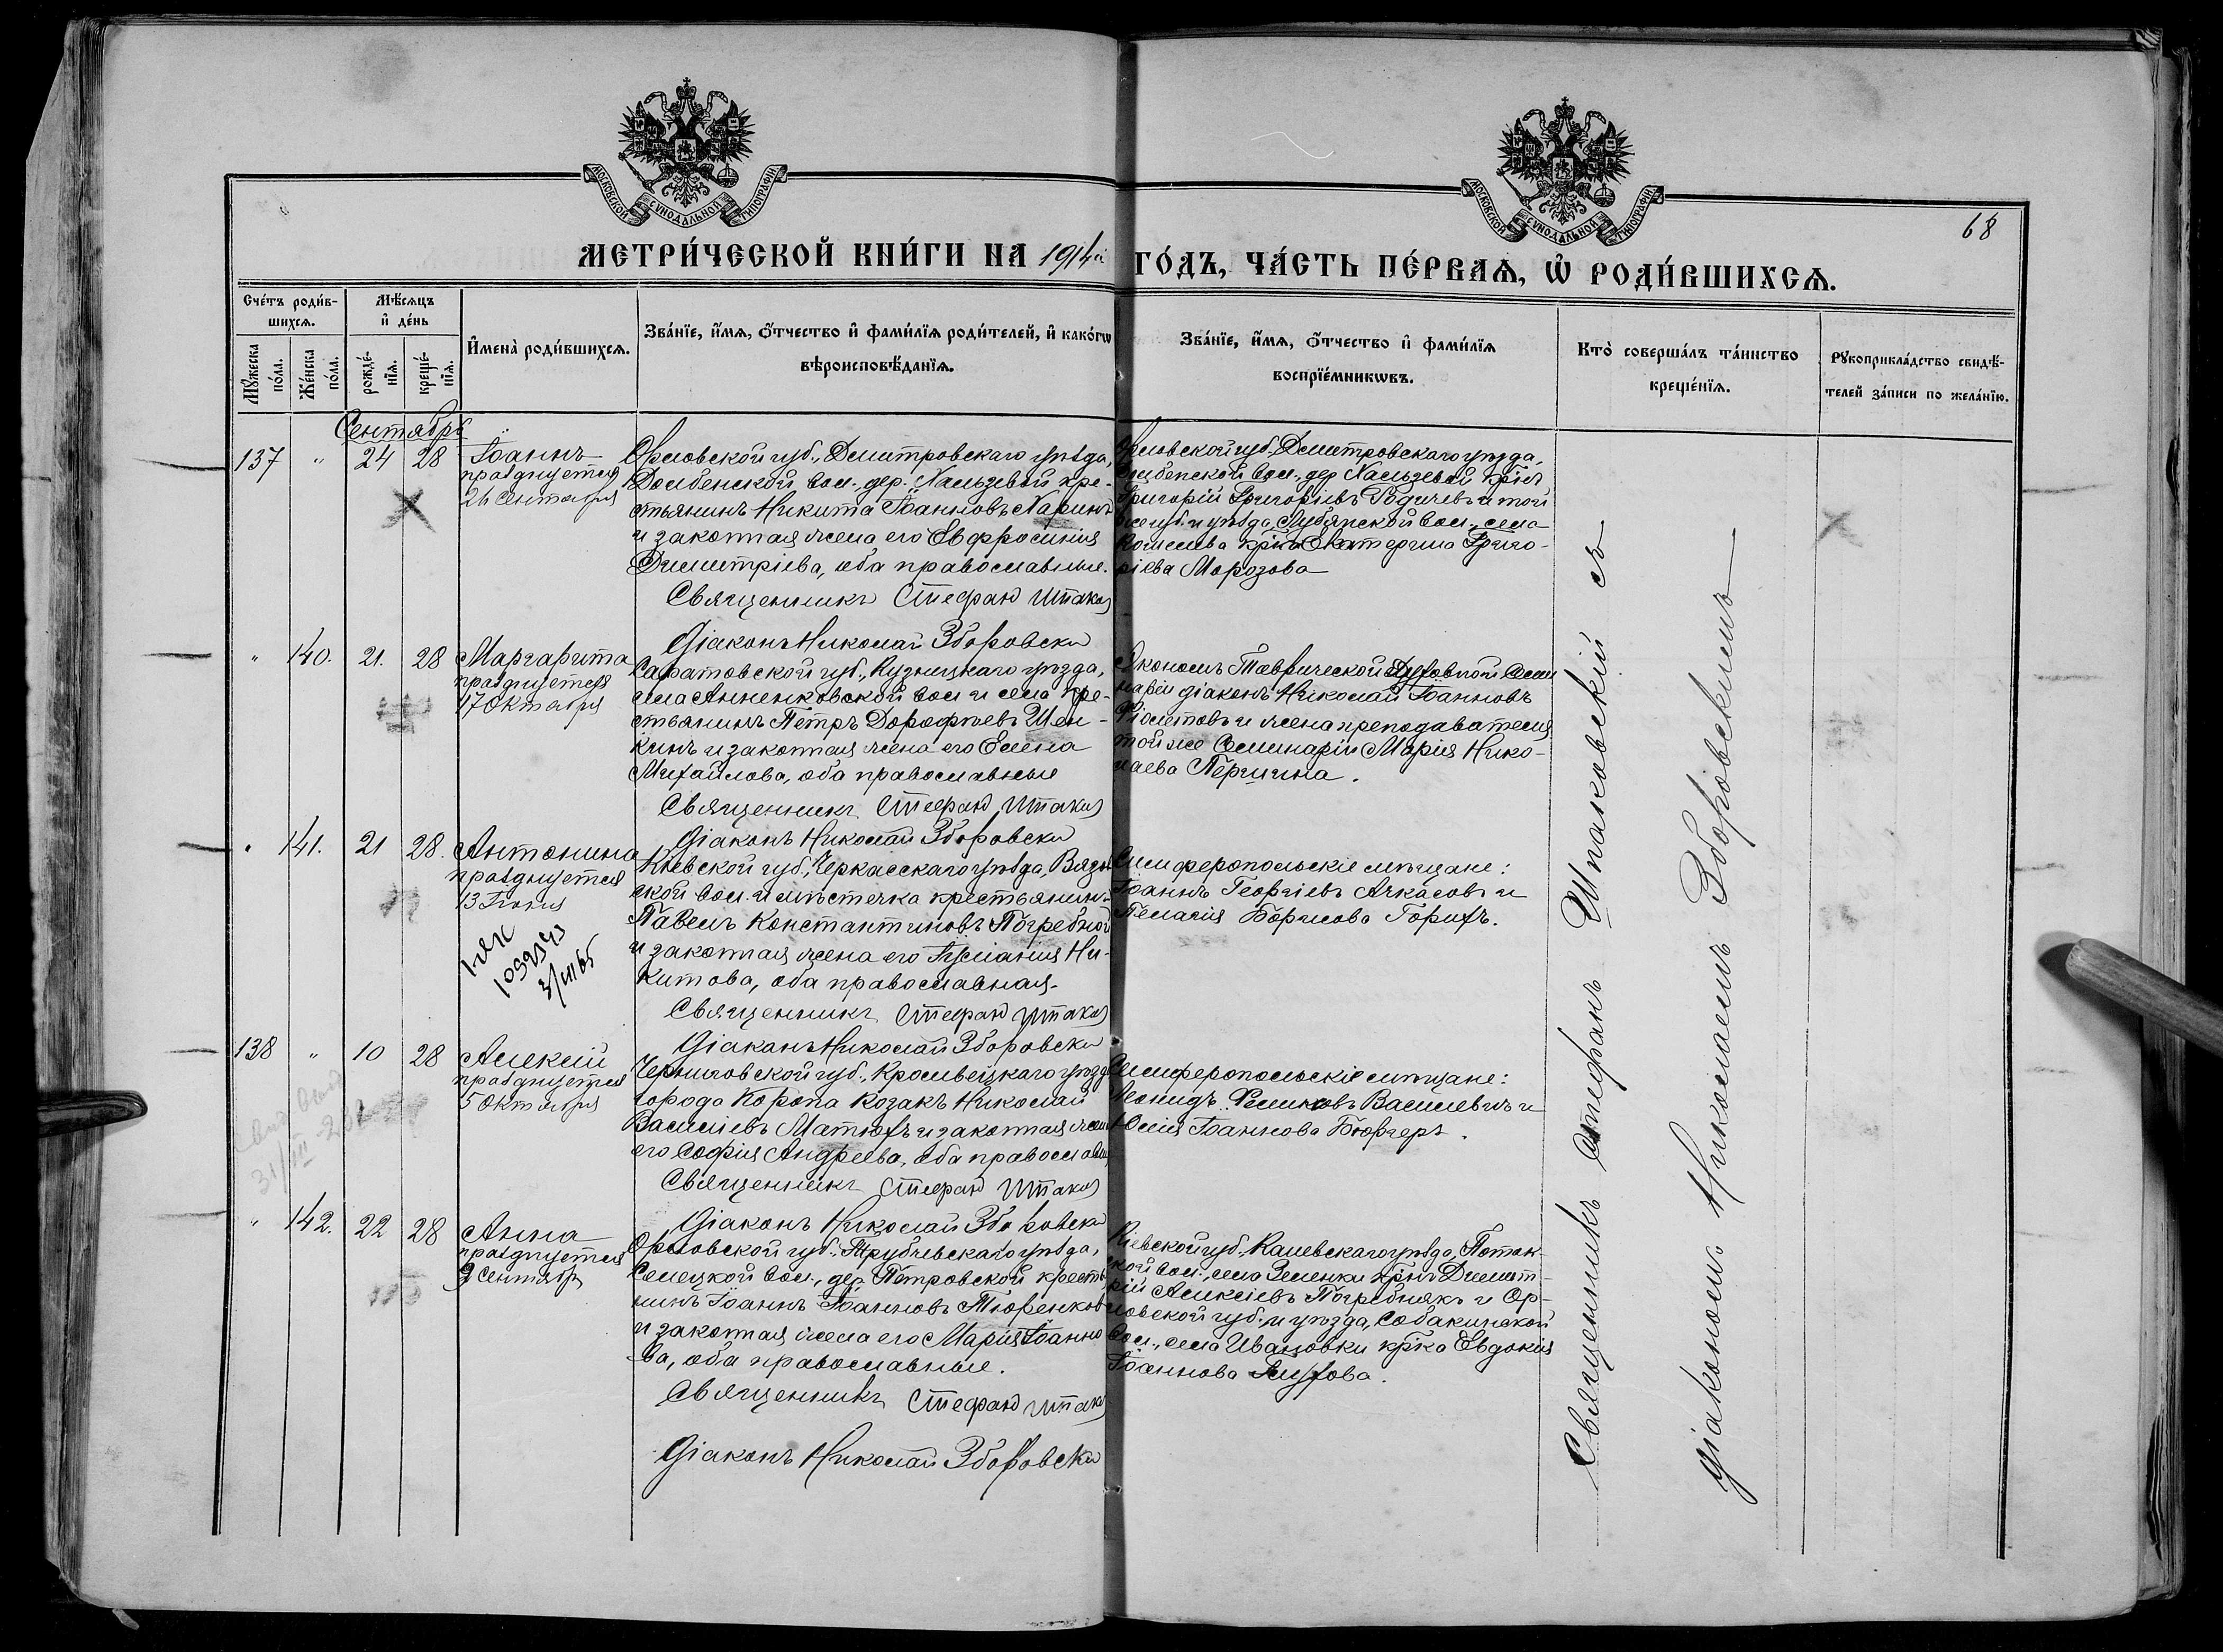 МОСКОВСКОЙ СѴНОДАЛЬНОЙ ТИПОГРАФІИ
МОСКОВСКОЙ СѴНОДАЛЬНОЙ ТИПОГРАФІИ
68
МЕТРИ́ЧЕСКОЙ КНИ́ГИ НА 1914й ГО́ДЪ, ЧА́СТЬ ПЕ́РВАЯ, Ѡ҆ РОДИ́ВШИХСЯ.
Сче́тъ роди́в-
шихся.
Мѣ́сяцъ
и҆ де́нь
Мꙋ́жеска
по́ла.
Же́нска
по́ла.
рожде́-
нїя.
креще́-
нїя.
И҆мена̀ роди́вшихся.
Зва́нїе, и҆́мя, ѻ҆́тчество и҆ фами́лїя роди́телей, и҆ како́гѡ
вѣроисповѣ́данїя.
Зва́нїе, и҆́мя, ѻ҆́тчество и҆ фами́лїя
воспрїе́мникѡвъ.
Кто̀ соверша́лъ та́инство
креще́нїя.
Рꙋкоприкла́дство свидѣ́-
телей за́писи по жела́нїю.
Сентябрь
137 " 24 28 Іоаннъ
празднуется
26 Сентября
Орловской губ., Дмитровскаго уѣзда,
Домбенской вол., дер. Хальзевой кре-
стьянинъ Никита Іоанновъ Харинъ
и законная жена его Евфросинія
Димитріева, оба православные.
Священникъ Стефанъ Шпаков
Діаконъ Николай Зборовски
Орловской губ., Дмитровскаго уѣзда,
Домбенской вол., дер. Хальзевой кр-нъ
Григорій Григорьевъ и той
же губ. и уѣзда, Лубянской вол., села
кр-ка Екатерина Григо-
ріева Морозова
" 140. 21. 28 Маргарита
празднуется
17 Октября
Саратовской губ., Кузнецкаго уѣзда,
села Анненковской вол. и села кре-
стьянинъ Петръ Дорофѣевъ Шен-
кинъ и законная жена его Елена
Михайлова, оба православные
Священникъ Стефанъ Шпаков
Діаконъ Николай Зборовски
Экономъ Таврической Духовной Семи
наріи діаконъ Николай Іоанновъ
и жена преподавателя
той же Семинаріи Марія Нико-
лаева Першина.
" 141. 21 28. Антонина
празднуется
13 Іюня
Кіевской губ., Черкасскаго уѣзда, Вязо
ской вол. и мѣстечка крестьянинъ
Павелъ Константиновъ Погребной
и законная жена его Іуліанія Ни-
китова, оба православная.
Священникъ Стефанъ Шпаков
Діаконъ Николай Зборовски
Симферопольскіе мѣщане:
Іоаннъ Георгіевъ Ачкасовъ и
Пелагія Борисова Горифъ.
138 " 10 28 Алексій
празднуется
5 Октября
Черниговской губ., Кролевецкаго уѣзда
города Коропа козакъ Николай
Васильевъ Матюхъ и законная жена
его Софія Андреева, оба православны
Священникъ Стефанъ Шпаков
Діаконъ Николай Зборовски
Симферопольскіе мѣщане:
Леонидъ Филиповъ Василевичъ и
Юлія Іоаннова Бюргеръ.
" 142. 22 28 Анна
празднуется
9 Сентябр
Орловской губ., Трубчевскаго уѣзда,
Селецкой вол., дер. Петровской крестья
нинъ Іоаннъ Іоанновъ Тюренков
и законная жена его Марія Іоанно
ва, оба православные.
Священникъ Стефанъ Шпаков
Діаконъ Николай Зборовски
Кіевской губ., Каневскаго уѣзда, Поток-
ской вол., села Зеленки кр-нъ Димит-
рій Алексіевъ Погребнякъ и Ор-
ловской губ. и уѣзда, Собакинской
вол., села Ивановки кр-ка Евдокія
Іоаннова
Священникъ Стефанъ Шпаковскій съ
діакономъ Николаемъ Зборовскимъ